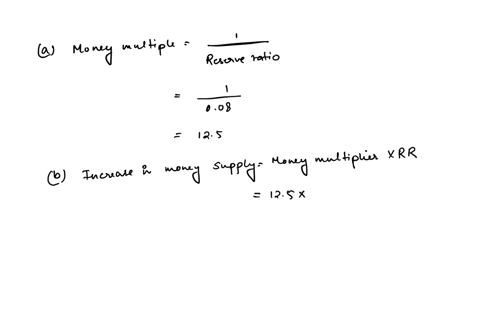 (a) Money multiple = 1 / Reserve ratio
= 1 / 0.08
= 12.5
(b) Increase in money supply = Money multiplier × RR
= 12.5 ×